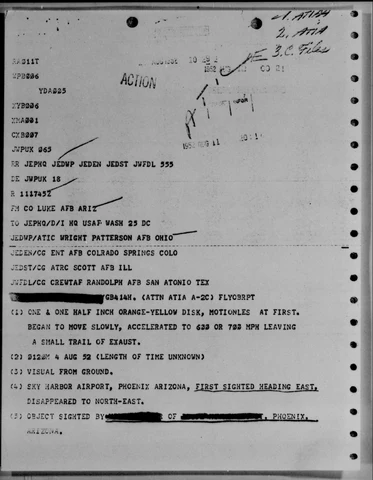 1. ATIAA
2. ATIA
3. C. Files
RA011T
UPB006
YDA005
ACTION
XYB006
XMA001
CXB007
1952 AUG 11
JWPUK 065
RR JEPHQ JEDWP JEDEN JEDST JWFDL 555
DE JWPUK 18
R 111745Z
FM CO LUKE AFB ARIZ
TO JEPHQ/D/I HQ USAF WASH 25 DC
JEDWP/ATIC WRIGHT PATTERSON AFB OHIO
JEDEN/CG ENT AFB COLRADO SPRINGS COLO
JEDST/CG ATRC SCOTT AFB ILL
JWFDL/CG CREWTAF RANDOLPH AFB SAN ATONIO TEX
GB414H. (ATTN ATIA A-2C) FLYOBRPT
(1) ONE & ONE HALF INCH ORANGE-YELLOW DISK, MOTIONLES AT FIRST.
BEGAN TO MOVE SLOWLY, ACCELERATED TO 600 OR 700 MPH LEAVING
A SMALL TRAIL OF EXAUST.
(2) 0120M 4 AUG 52 (LENGTH OF TIME UNKNOWN)
(3) VISUAL FROM GROUND.
(4) SKY HARBOR AIRPORT, PHOENIX ARIZONA, FIRST SIGHTED HEADING EAST.
DISAPPEARED TO NORTH-EAST.
(5) OBJECT SIGHTED BY OF , PHOENIX.
ARIZONA.